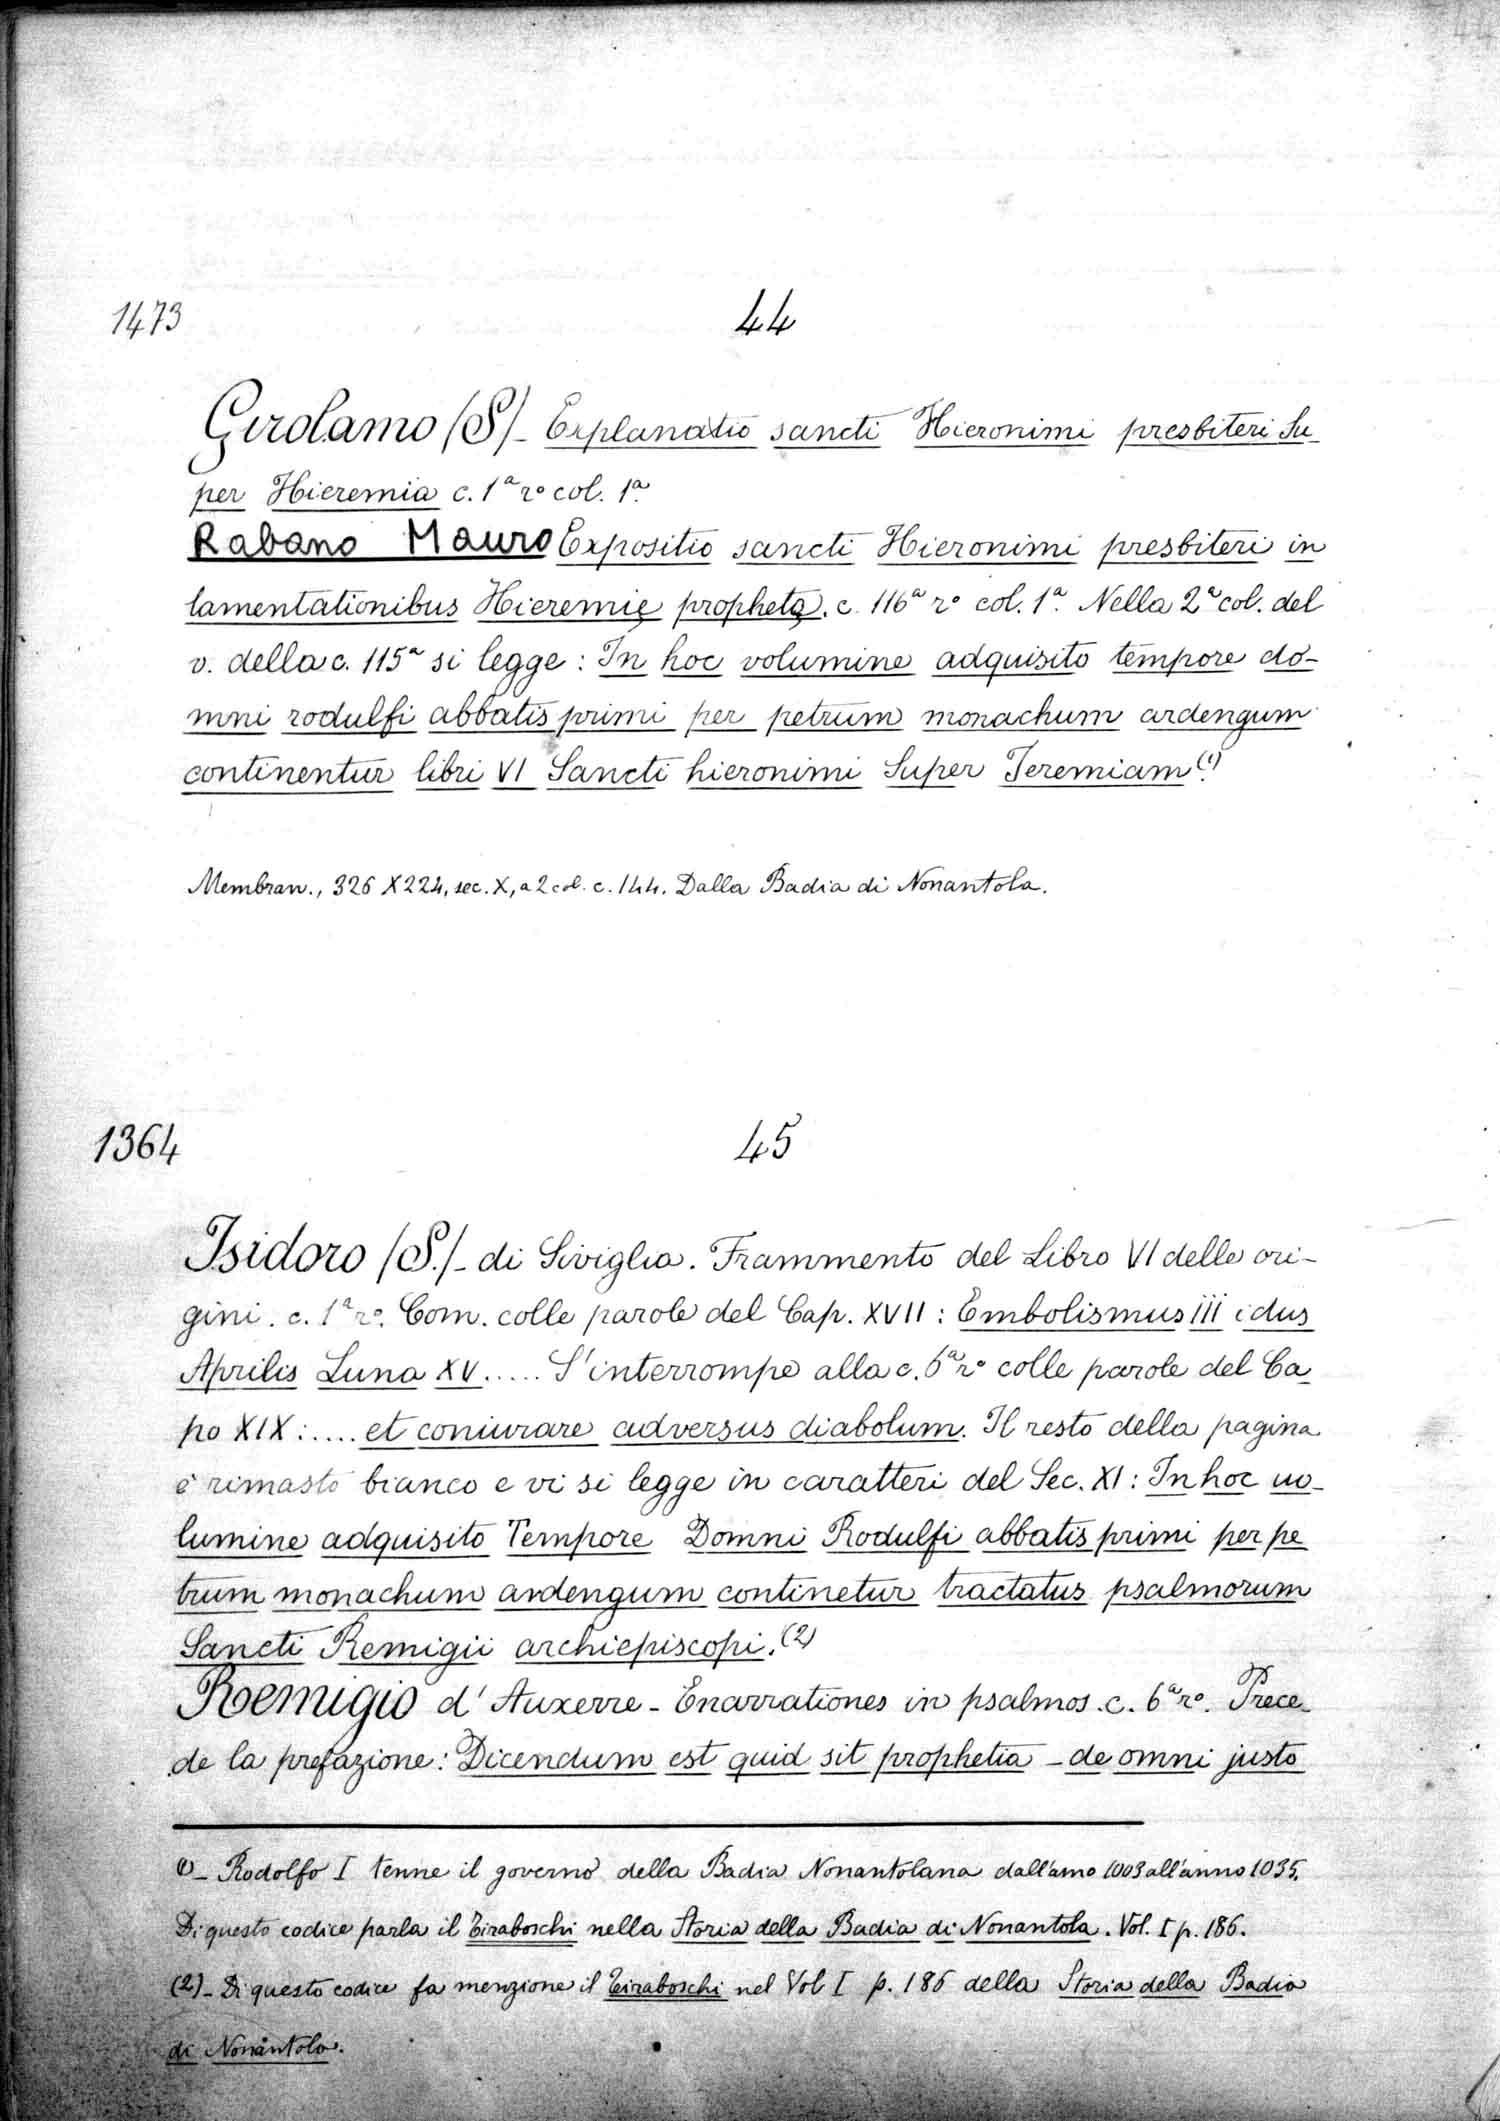 1473
44
Girolamo (S) - Explanatio sancti Hieronimi presbiteri Su-
per Hieremia c. 1ª rº col. 1ª.
Rabano Mauro Expositio sancti Hieronimi presbiteri in
lamentationibus Hieremię prophetę. c. 116ª rº col. 1ª. Nella 2ª col. del
v. della c. 115ª si legge: In hoc volumine adquisito tempore do-
mni rodulfi abbatis primi per petrum monachum ardengum
continentur libri VI Sancti hieronimi Super Jeremiam (1)
Membran., 326 X 224, sec. X, a 2 col. c. 144. Dalla Badia di Nonantola.
1364
45
Isidoro (S.) - di Siviglia. Frammento del Libro VI delle ori-
gini. c. 1ª rº. Com. colle parole del Cap. XVII: Embolismus iii idus
Aprilis Luna XV ..... S'interrompe alla c. 6ª rº colle parole del Ca-
po XIX: .... et coniurare adversus diabolum. Il resto della pagina
è rimasto bianco e vi si legge in caratteri del Sec. XI: In hoc uo-
lumine adquisito Tempore Domni Rodulfi abbatis primi per pe
trum monachum ardengum continetur tractatus psalmorum
Sancti Remigii archiepiscopi. (2)
Remigio d'Auxerre - Enarrationes in psalmos. c. 6ª rº. Prece-
de la prefazione: Dicendum est quid sit prophetia - de omni justo
(1) - Rodolfo I tenne il governo della Badia Nonantolana dall'anno 1003 all'anno 1035.
Di questo codice parla il Tiraboschi nella Storia della Badia di Nonantola. Vol. I p. 186.
(2) - Di questo codice fa menzione il Tiraboschi nel Vol I p. 186 della Storia della Badia
di Nonantola.